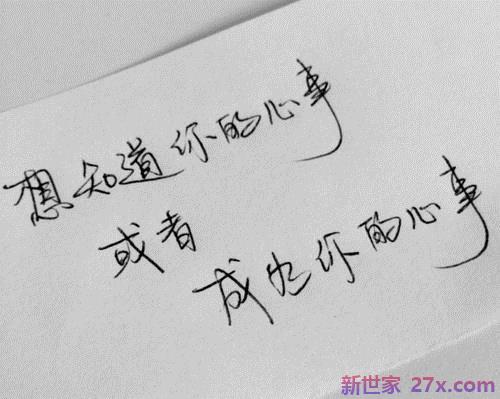 想知道你的心事
或者
成为你的心事
新世家 27x.com